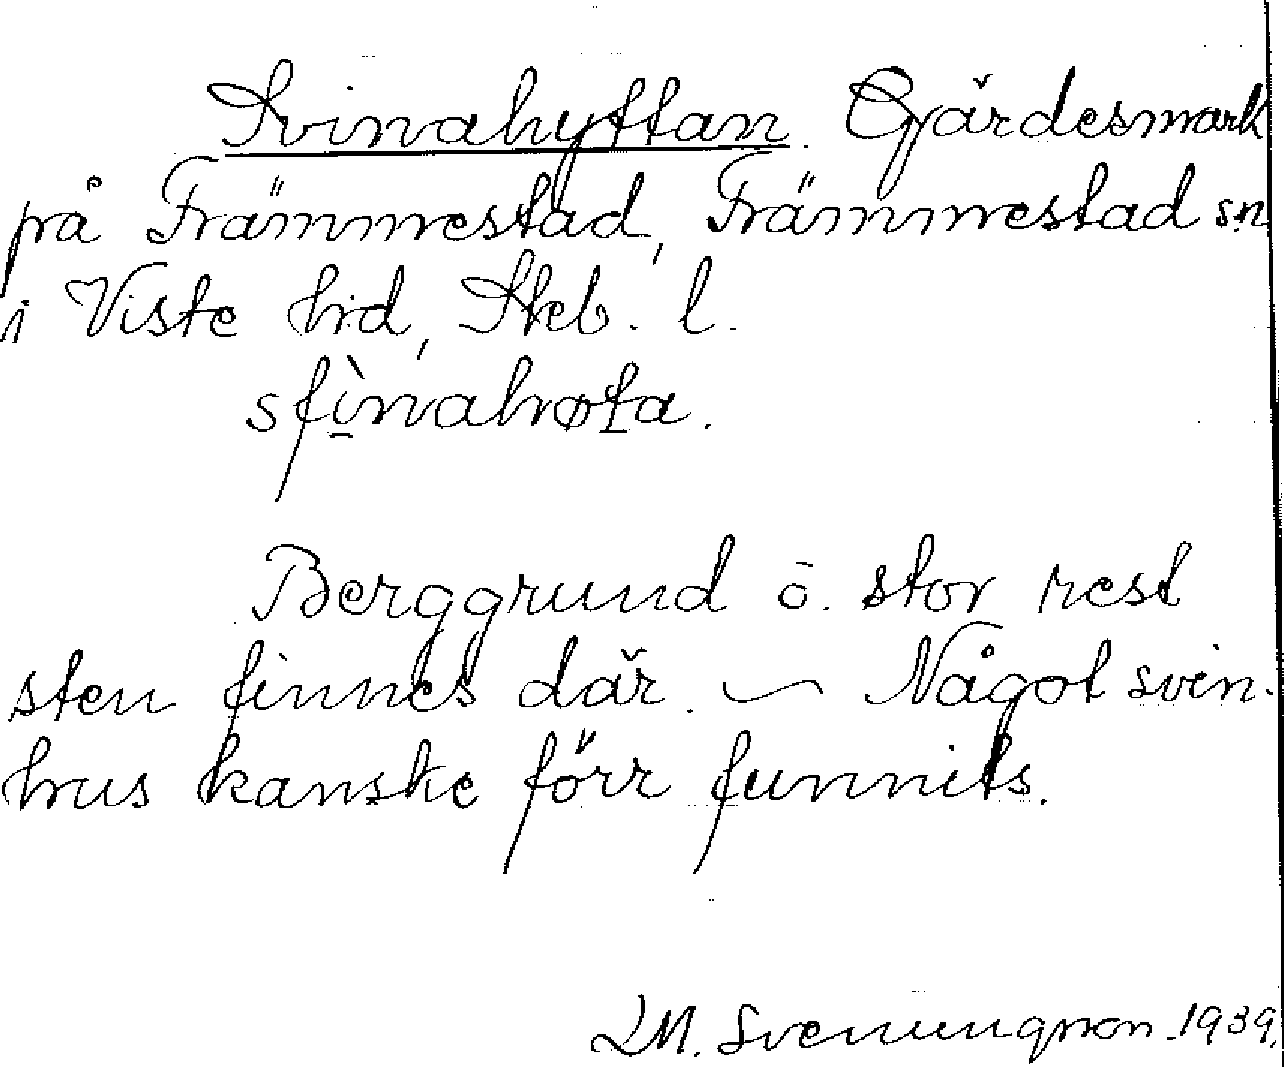 Svinahyttan. Gärdesmark
på Främmestad, Främmestad sn
i Viste hd, Skb. l.
sfìnahøta.
Berggrund o. stor rest
sten finnes där. — Något svin-
hus kanske förr funnits.
LM. Svenungsson 1939.